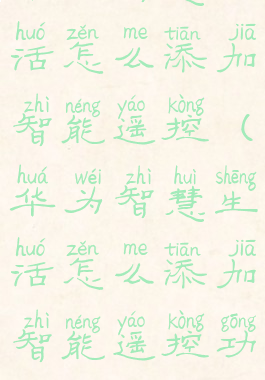 huó zěn me tiān jiā
活怎么添加
zhì néng yáo kòng
智能遥控（
huá wéi zhì huì shēng
华为智慧生
huó zěn me tiān jiā
活怎么添加
zhì néng yáo kòng gōng
智能遥控功